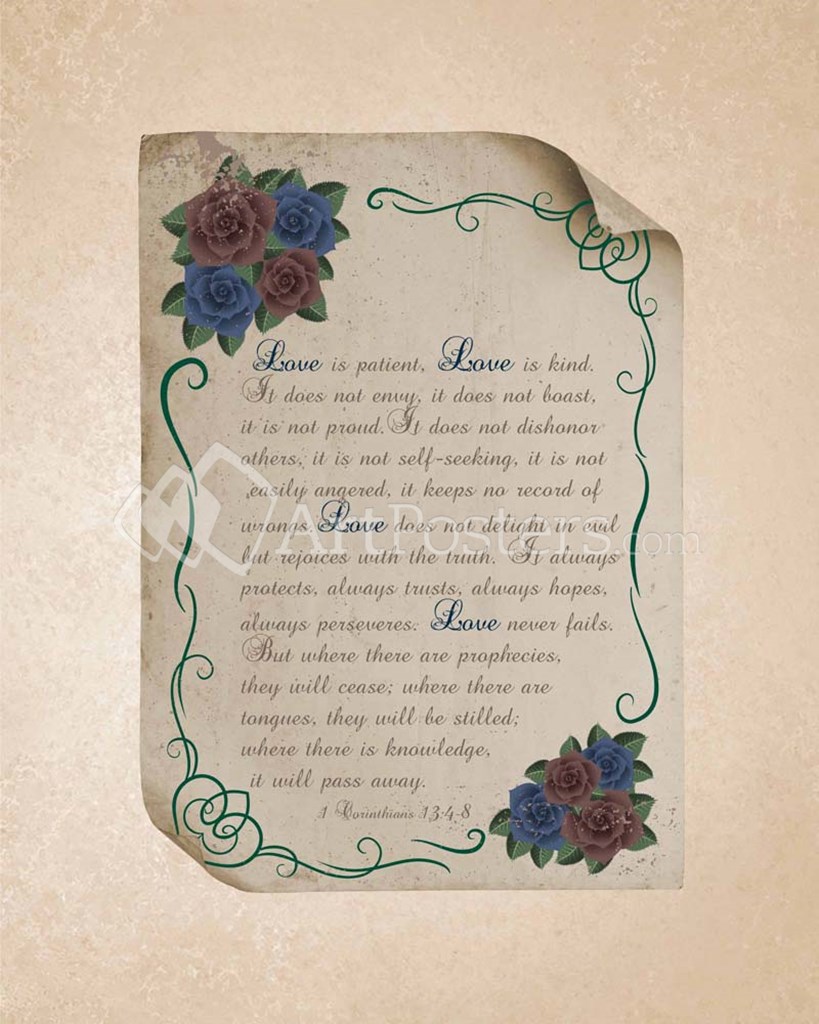 Love is patient, Love is kind.
It does not envy, it does not boast,
it is not proud. It does not dishonor
others, it is not self-seeking, it is not
easily angered, it keeps no record of
wrongs. Love does not delight in evil
but rejoices with the truth. It always
protects, always trusts, always hopes,
always perseveres. Love never fails.
But where there are prophecies,
they will cease; where there are
tongues, they will be stilled;
where there is knowledge,
it will pass away.
1 Corinthians 13:4-8
ArtPosters.com